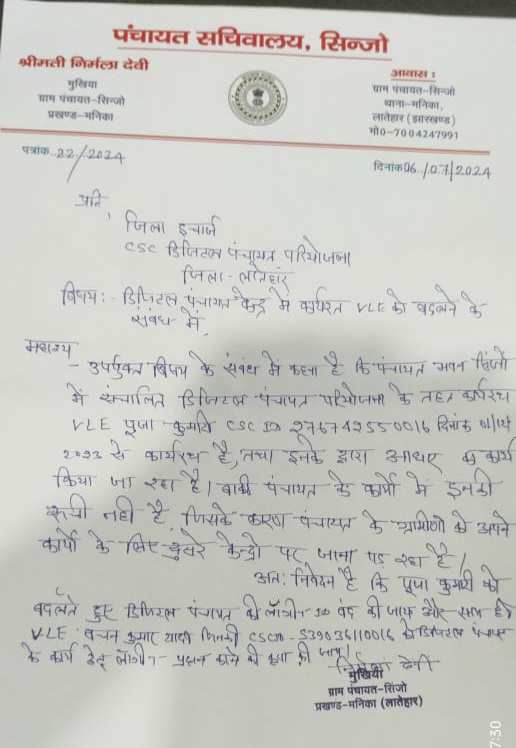 पंचायत सचिवालय, सिन्जो
श्रीमती निर्मला देवी
मुखिया
ग्राम पंचायत-सिन्जो
प्रखण्ड-मनिका
आवास :
ग्राम पंचायत-सिन्जो
थाना-मनिका,
लातेहार (झारखण्ड)
मो0-7004247991
पत्रांक..22/2024
दिनांक06../07/2024
प्रति,
जिला इचार्ज
CSC डिजिटल पंचायत परियोजना
जिला - लातेहार
विषय:- डिजिटल पंचायत केन्द्र में कार्यरत VLE को बदलने के
संबंध में,
महाशय
- उपर्युक्त विषय के संबंध में कहना है कि पंचायत भवन सिंजो
में संचालित डिजिटल पंचायत परियोजना के तहत कार्यरथ
VLE पूजा कुमारी CSC ID 276742550016 दिनांक 01/
2023 से कार्यरथ है, तथा इनके द्वारा आधार का कार्य
किया जा रहा है। बाकी पंचायत के कार्यो में इनकी
रूची नही है, जिसके कारण पंचायत के ग्रामीणो को अपने
कार्यो के लिए दुसरे केन्द्रो पर जाना पड रहा है।
अत: निवेदन है कि पूजा कुमारी को
बदलते हुए डिजिटल पंचायत की लॉगीन ID बंद की जाए और साथ ही
VLE कुमार यादव जिनकी CSC ID - 539036110016 को डिजिटल पंचायत
के कार्य हेतु लॉगीन प्रदान करने की कृपा की जाए।
निर्मला देवी
मुखिया
ग्राम पंचायत-सिंजो
प्रखण्ड-मनिका (लातेहार)
7:30